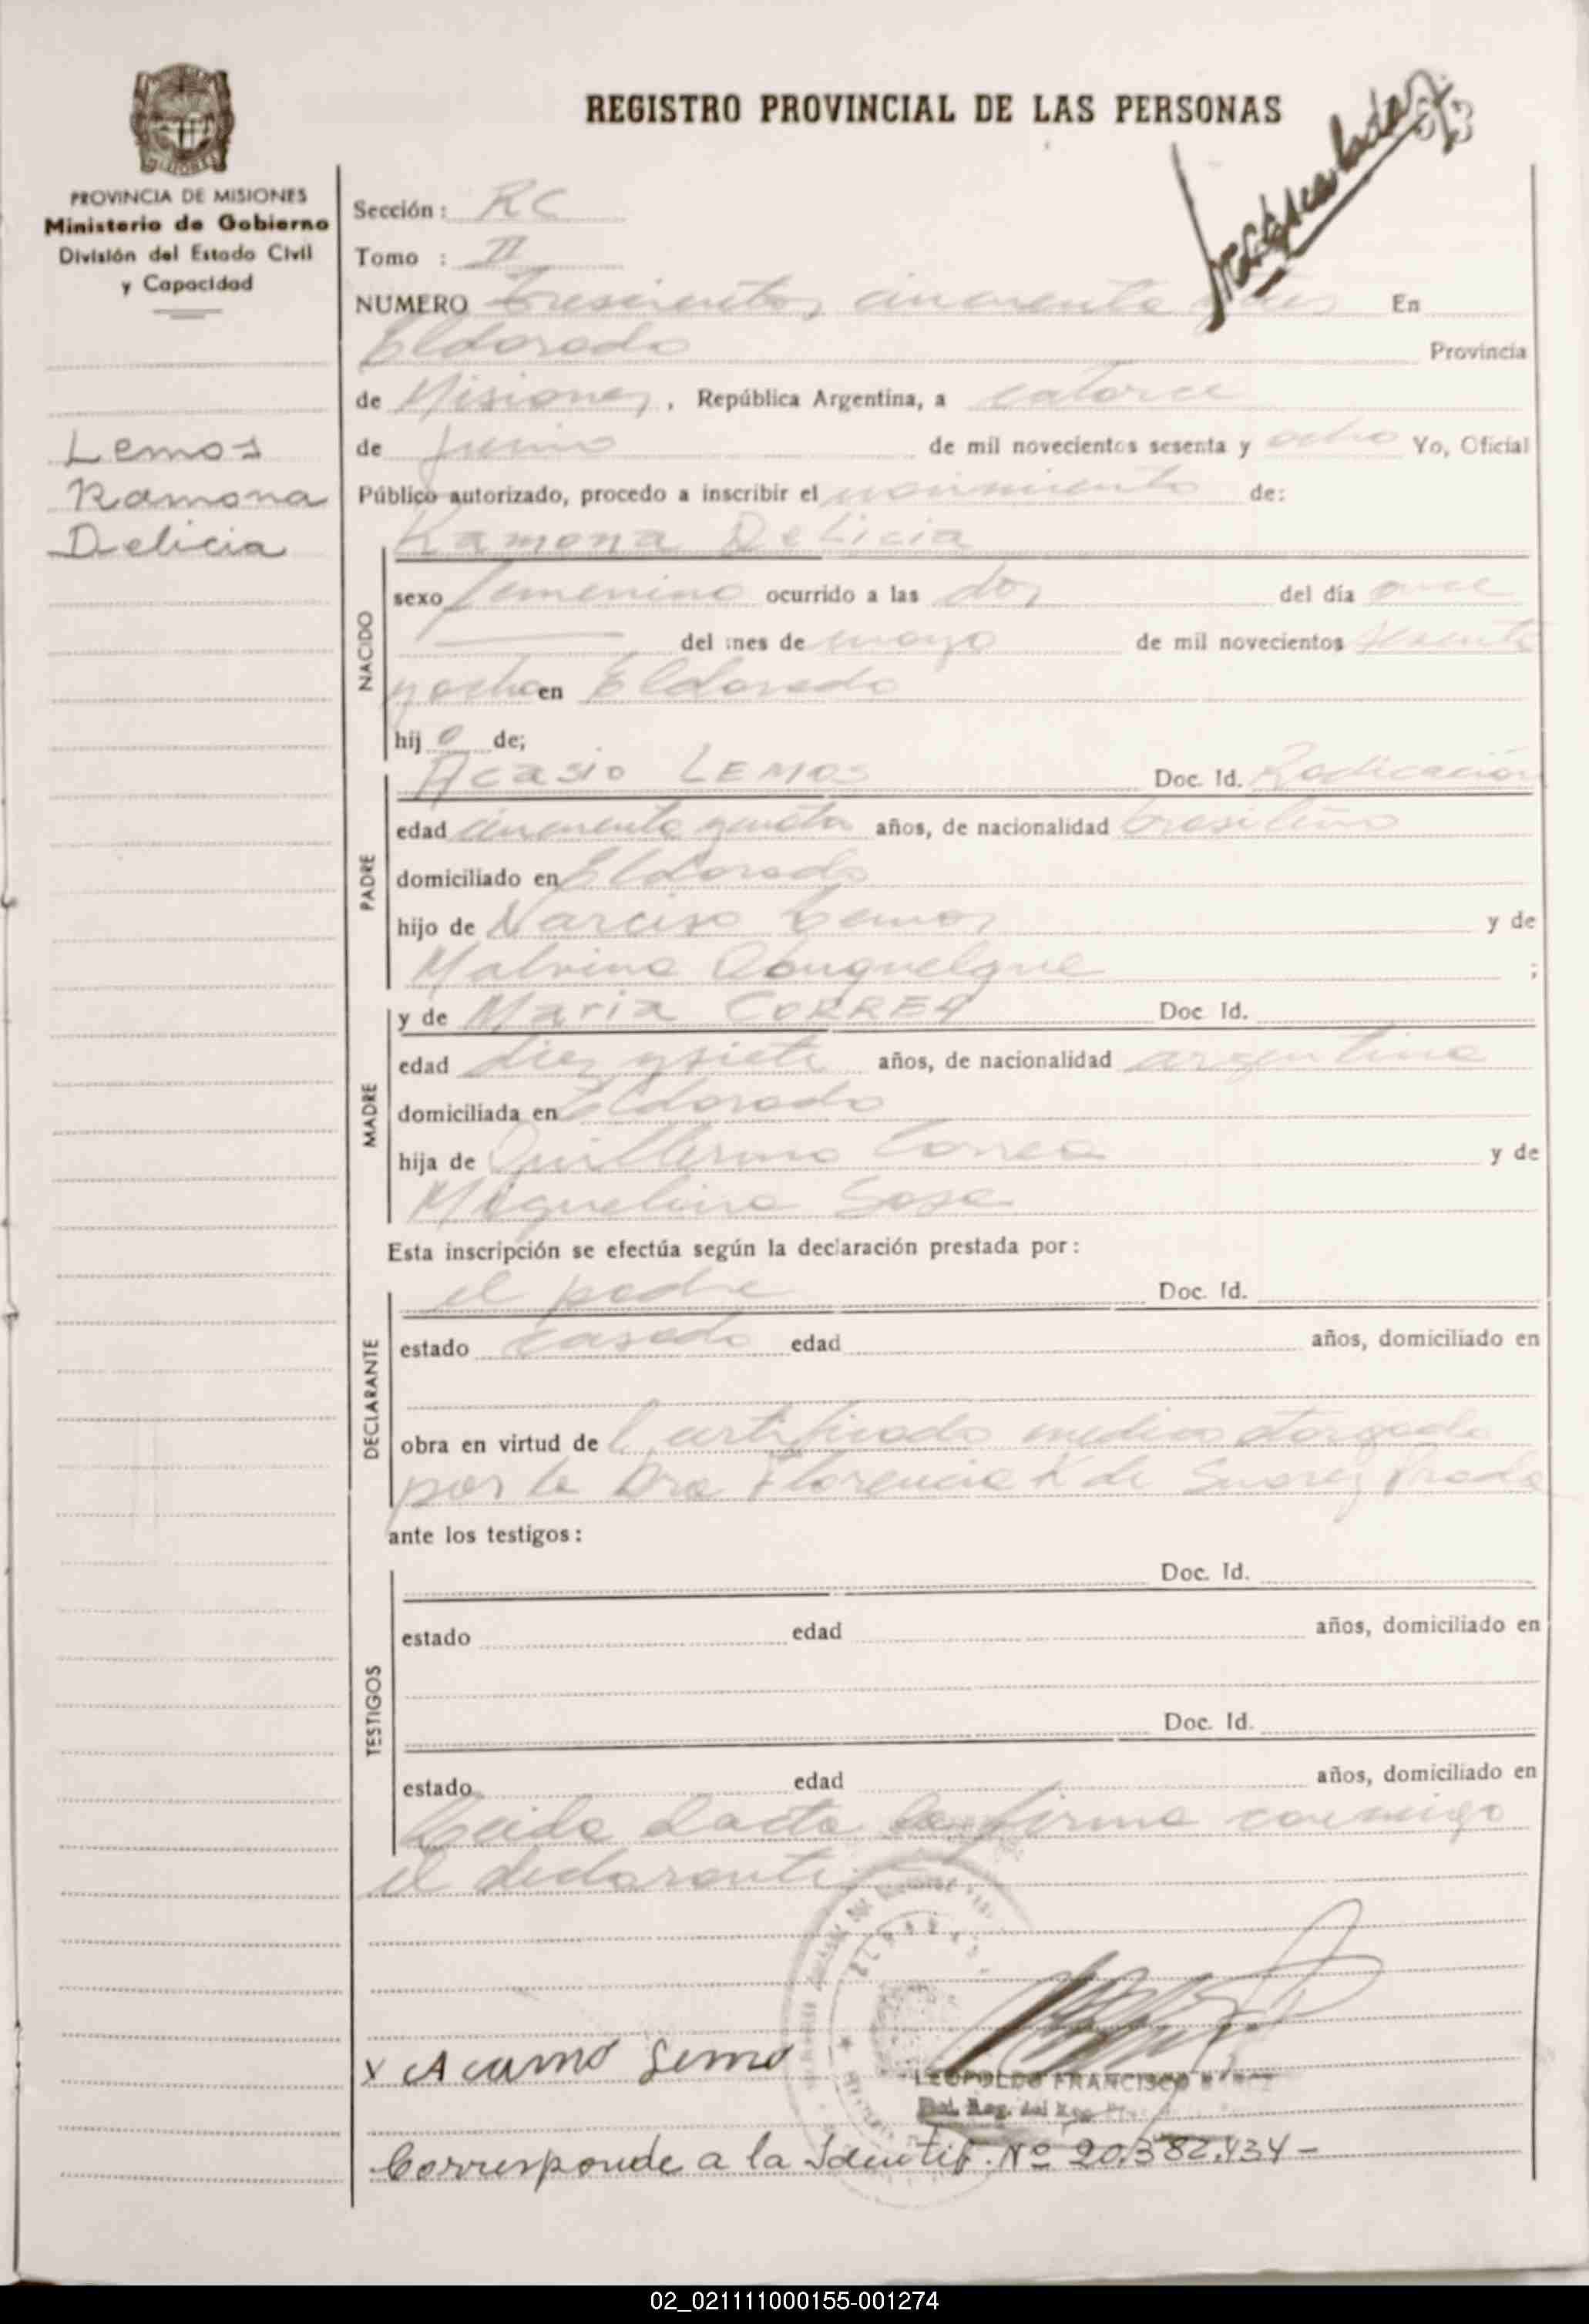 REGISTRO PROVINCIAL DE LAS PERSONAS
PROVINCIA DE MISIONES
Ministerio de Gobierno
División del Estado Civil
y Capacidad
Lemos
Ramona
Delicia
Sección: RC
Tomo : II
NUMERO Trescientos cincuenta En
Eldorado Provincia
de Misiones, República Argentina, a catorce
de junio de mil novecientos sesenta y ocho Yo, Oficial
Público autorizado, procedo a inscribir el nacimiento de:
NACIDO
Ramona Delicia
sexo femenino ocurrido a las dos del día once
del mes de mayo de mil novecientos sesenta
y ocho en Eldorado
hij a de;
PADRE
Acasio LEMOS Doc. Id. Radicación
edad cincuenta años, de nacionalidad brasileño
domiciliado en Eldorado
hijo de Narciso Lemos y de
Malvina ;
MADRE
y de Maria CORREA Doc Id.
edad diez y siete años, de nacionalidad argentina
domiciliada en Eldorado
hija de Guillermo Correa y de
Miguelina Sosa
Esta inscripción se efectúa según la declaración prestada por:
DECLARANTE
el padre Doc. Id.
estado casado edad años, domiciliado en
obra en virtud de certificado medico otorgado
por la Dra Florencia K de Suarez Prado
ante los testigos:
TESTIGOS
Doc. Id.
estado edad años, domiciliado en
Doc. Id.
estado edad años, domiciliado en
Leida el acta la firma conmigo
el declarante
LEOPOLDO FRANCISCO
Corresponde a la Identif. Nº 20.382.434-
02_021111000155-001274